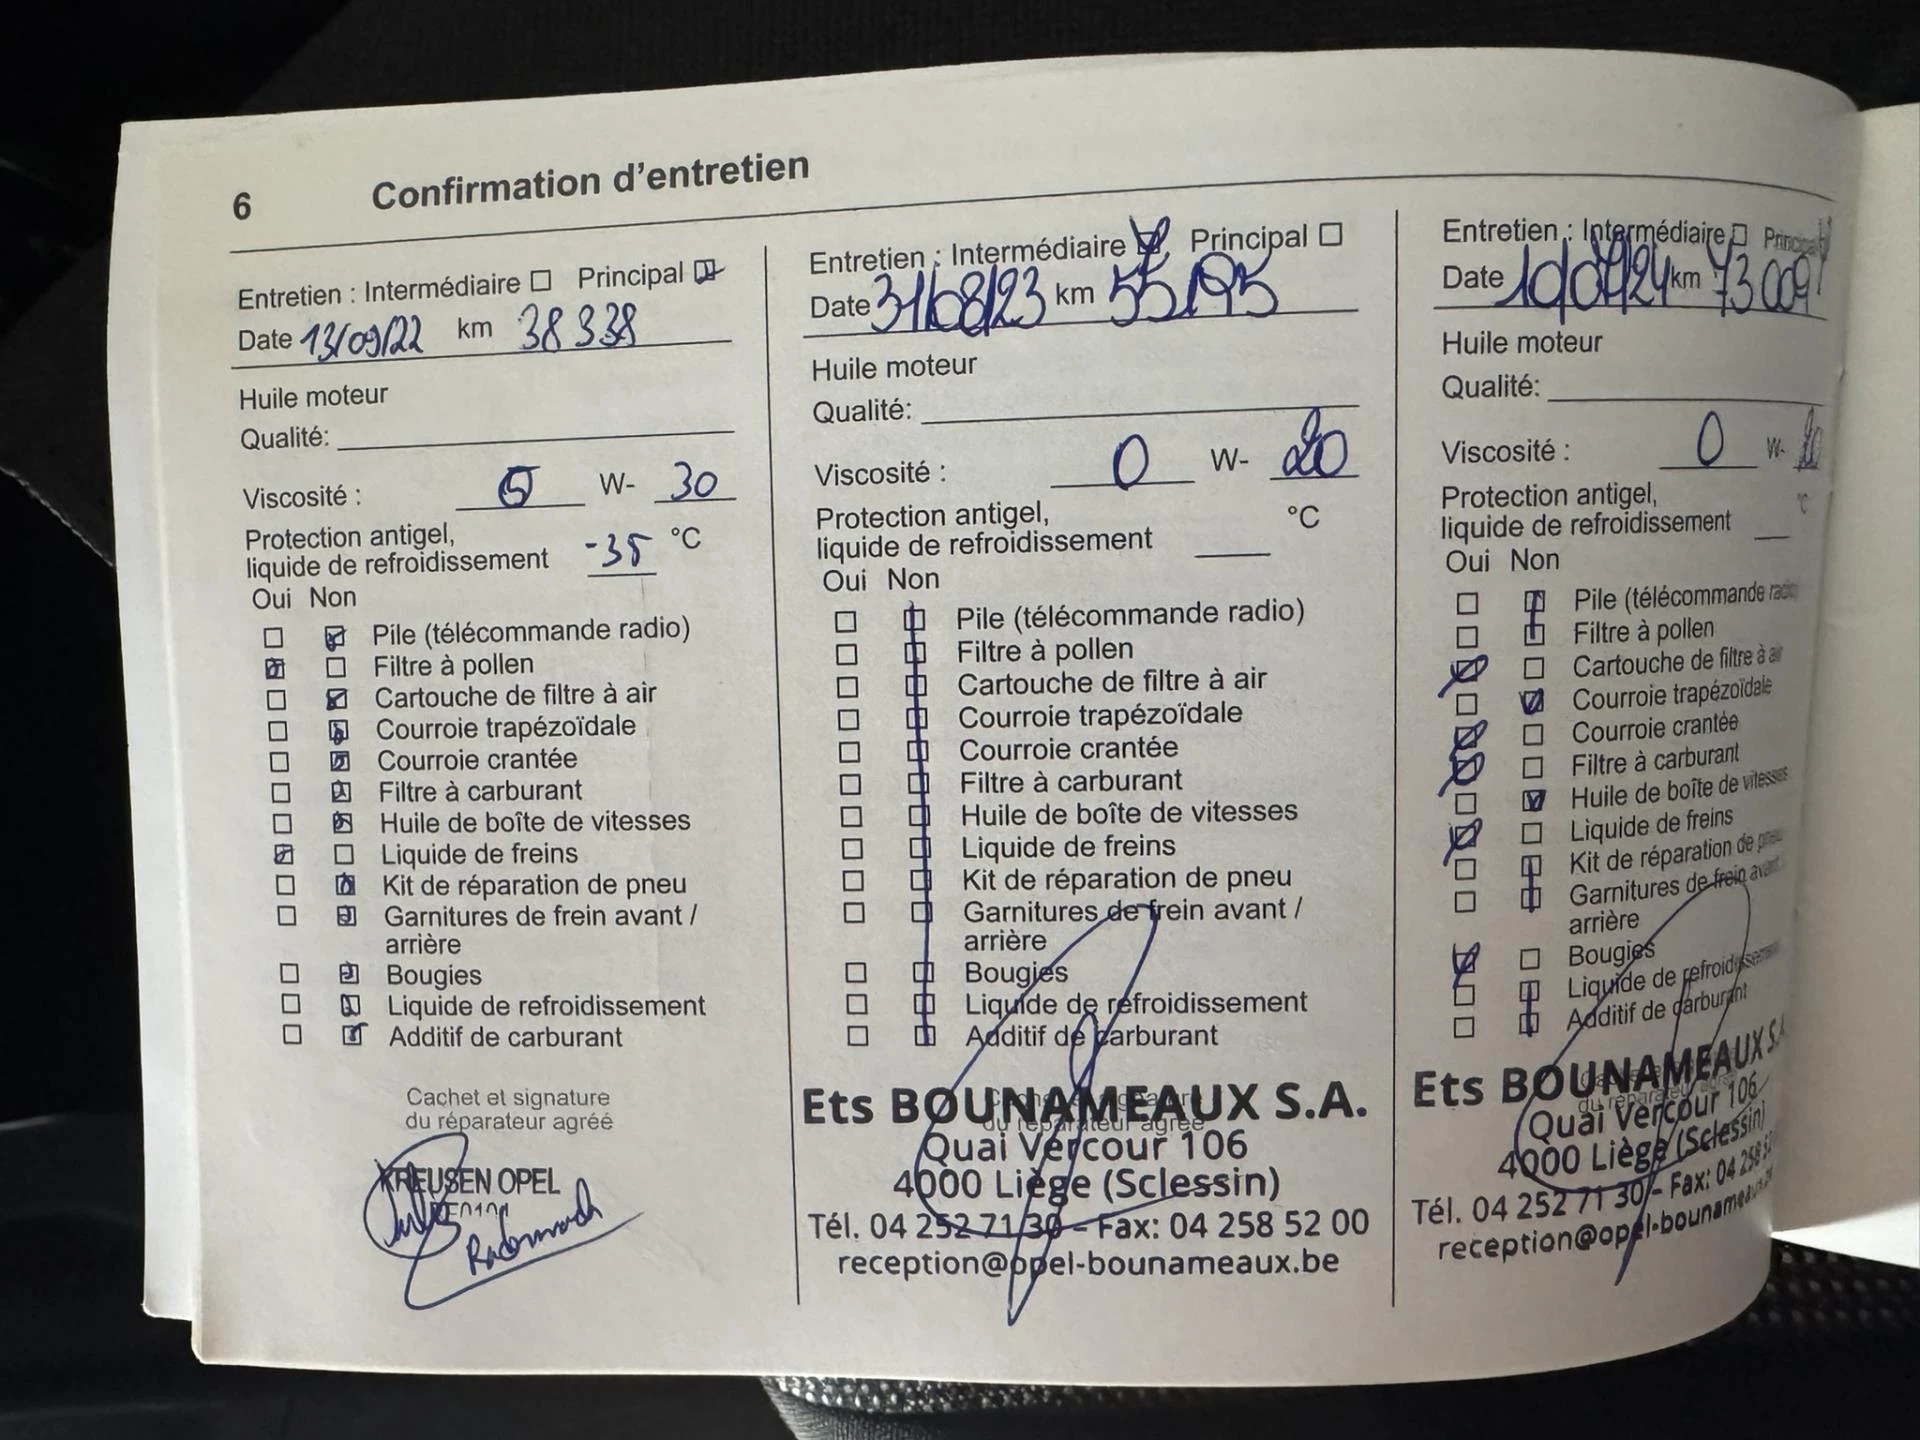 6 Confirmation d'entretien
Entretien : Intermédiaire Principal
Date 13/09/22 km 38338
Huile moteur
Qualité:
Viscosité : 5 W- 30
Protection antigel,
liquide de refroidissement -35 °C
Oui Non
Pile (télécommande radio)
Filtre à pollen
Cartouche de filtre à air
Courroie trapézoïdale
Courroie crantée
Filtre à carburant
Huile de boîte de vitesses
Liquide de freins
Kit de réparation de pneu
Garnitures de frein avant /
arrière
Bougies
Liquide de refroidissement
Additif de carburant
Cachet et signature
du réparateur agréé
KREUSEN OPEL
Entretien : Intermédiaire Principal
Date 31/08/23 km 55195
Huile moteur
Qualité:
Viscosité : 0 W- 20
Protection antigel, °C
liquide de refroidissement
Oui Non
Pile (télécommande radio)
Filtre à pollen
Cartouche de filtre à air
Courroie trapézoïdale
Courroie crantée
Filtre à carburant
Huile de boîte de vitesses
Liquide de freins
Kit de réparation de pneu
Garnitures de frein avant /
arrière
Bougies
Liquide de refroidissement
Additif de carburant
Cachet et signature
du réparateur agréé
Ets BOUNAMEAUX S.A.
Quai Vercour 106
4000 Liège (Sclessin)
Tél. 04 252 71 30 - Fax: 04 258 52 00
reception@opel-bounameaux.be
Entretien : Intermédiaire Principal
Date km 73009
Huile moteur
Qualité:
Viscosité : 0 W- 20
Protection antigel, °C
liquide de refroidissement
Oui Non
Pile (télécommande radio)
Filtre à pollen
Cartouche de filtre à air
Courroie trapézoïdale
Courroie crantée
Filtre à carburant
Huile de boîte de vitesses
Liquide de freins
Kit de réparation de pneu
Garnitures de frein avant
arrière
Bougies
Liquide de refroidissement
Additif de carburant
du réparateur agréé
Ets BOUNAMEAUX S.A.
Quai Vercour 106
4000 Liège (Sclessin)
Tél. 04 252 71 30 - Fax: 04 258
reception@opel-bounameaux